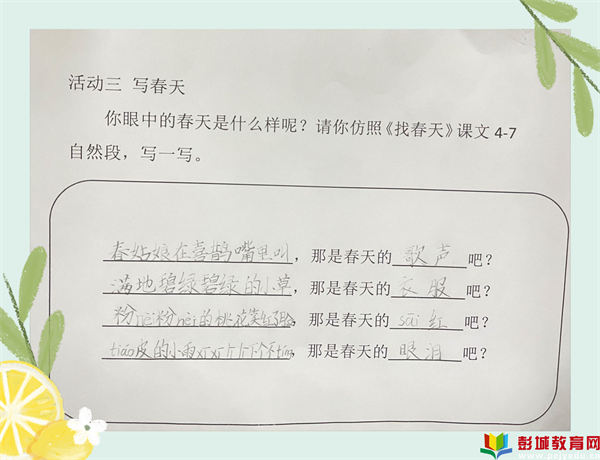 活动三 写春天
你眼中的春天是什么样呢？请你仿照《找春天》课文 4-7
自然段，写一写。
春姑娘在喜鹊嘴里叫，那是春天的 歌声 吧？
满地碧绿碧绿的小草，那是春天的 衣服 吧？
粉nèi粉nèi的桃花笑红了脸，那是春天的 sāi红 吧？
tiáo皮的小雨 下个不tíng，那是春天的 眼泪 吧？
彭城教育网